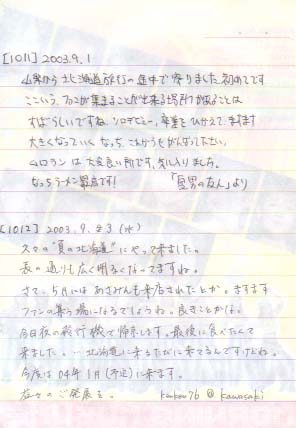 [1011] 2003.9.1
山梨から北海道旅行の途中で寄りました。初めてです
こういう、ファンが集まることが出来る場所があることは
すばらしいですね。ソロデビュー、卒業をひかえて、ますます
大きくなっていく なっち、これからもがんばって下さい。
ムロランは 大変良い所です。気に入りました。
なっちラーメン最高です! 「 友人」より
[1012] 2003.9.3 (水)
久々の"夏の北海道"にやって来ました。
表の通りも広く明るくなってますね。
さて、5月には あさみんも来店されたとか。ますます
ファンの集う場になるでしょうね。良きことかな。
今日夜の飛行機で帰京します。最後に食べたくて
来ました。…北海道に来るたびに来てるんですけどね。
今度は 04年1月(予定)に来ます。
益々のご発展を。 kankan76 @ kawasaki